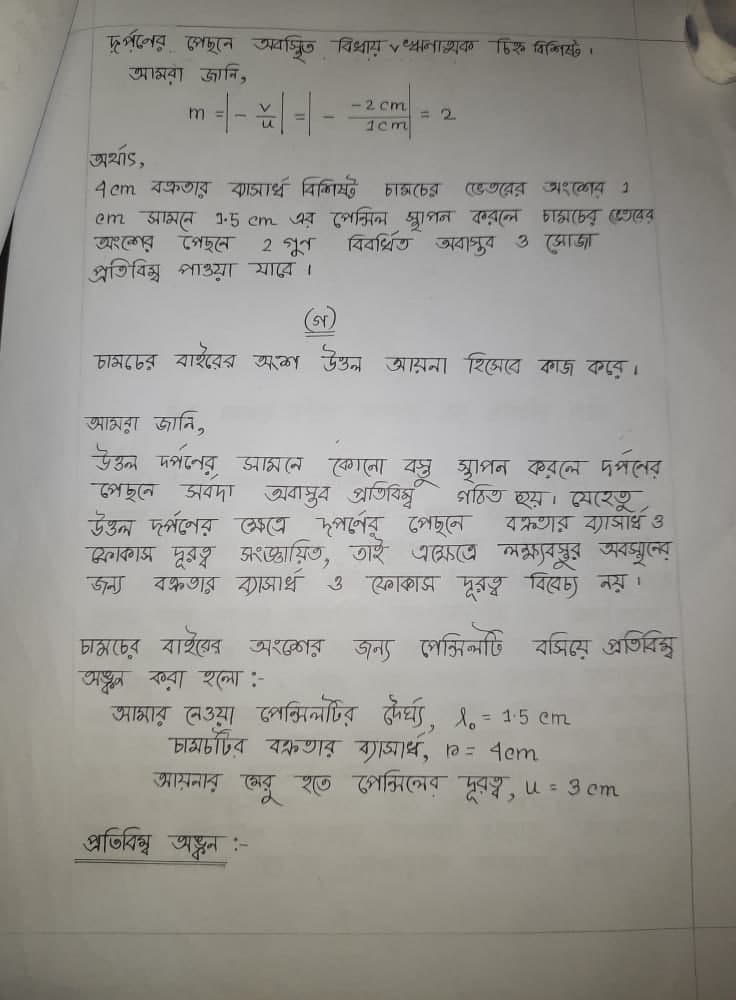 দর্পনের পেছনে অবস্থিত বিধায় v ঋনাত্মক চিহ্ন বিশিষ্ট।
আমরা জানি,
m = |- v/u| = |- -2 cm/1 cm| = 2
অর্থাৎ,
4cm বক্রতার ব্যাসার্ধ বিশিষ্ট চামচের ভেতরের অংশের 1
cm সামনে 1.5 cm এর পেন্সিল স্থাপন করলে চামচের ভেতরের
অংশের পেছনে 2 গুণ বিবর্ধিত অবাস্তব ও সোজা
প্রতিবিম্ব পাওয়া যাবে।
(গ)
চামচের বাইরের অংশ উত্তল আয়না হিসেবে কাজ করে।
আমরা জানি,
উত্তল দর্পনের সামনে কোনো বস্তু স্থাপন করলে দর্পনের
পেছনে সর্বদা অবাস্তব প্রতিবিম্ব গঠিত হয়। যেহেতু
উত্তল দর্পনের ক্ষেত্রে দর্পনের পেছনে বক্রতার ব্যাসার্ধ ও
ফোকাস দূরত্ব সংজ্ঞায়িত, তাই এক্ষেত্রে লক্ষ্যবস্তুর অবস্থানের
জন্য বক্রতার ব্যাসার্ধ ও ফোকাস দূরত্ব বিবেচ্য নয়।
চামচের বাইরের অংশের জন্য পেন্সিলটি বসিয়ে প্রতিবিম্ব
অঙ্কন করা হলো:-
আমার নেওয়া পেন্সিলটির দৈর্ঘ্য, l₀ = 1.5 cm
চামচটির বক্রতার ব্যাসার্ধ, r = 4cm
আয়নার মেরু হতে পেন্সিলের দূরত্ব, u = 3 cm
প্রতিবিম্ব অঙ্কন :-